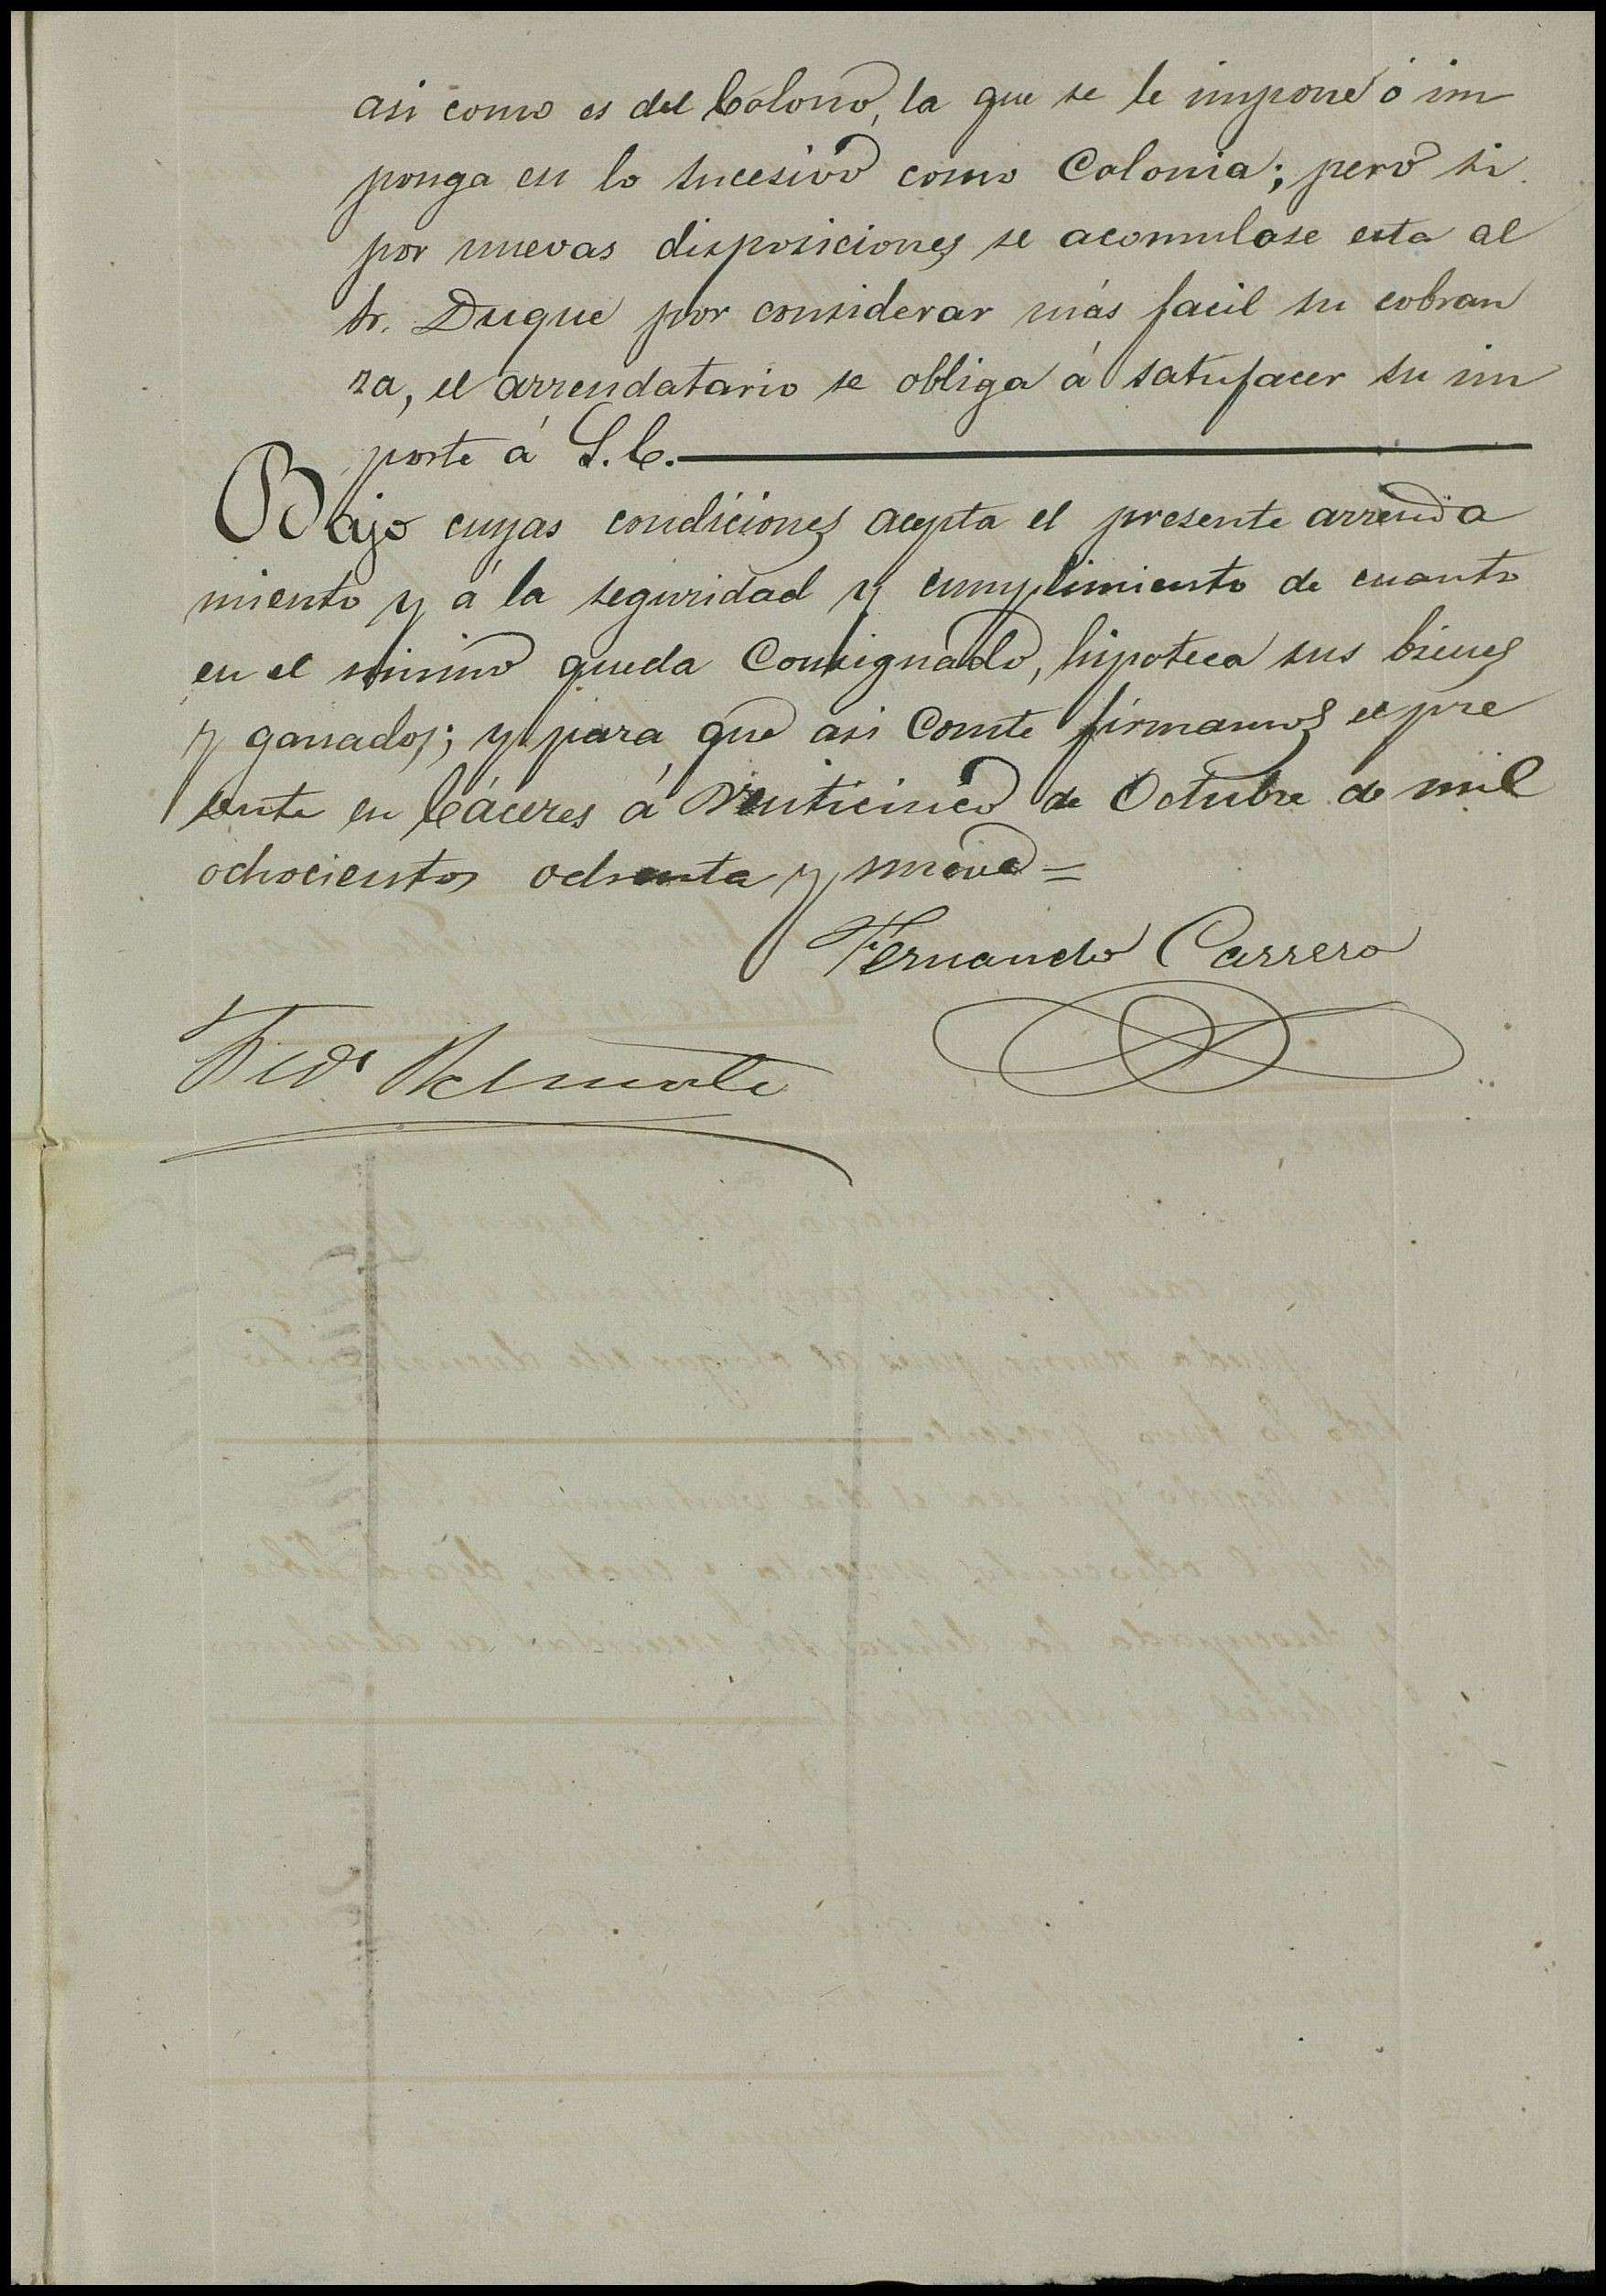 asi como es del Colono, la que se le impone ó im
ponga en lo sucesivo como Colonia; pero si
por nuevas disposiciones se acomulase esta al
Sr. Duque por considerar más facil su cobran
za, el arrendatario se obliga á satisfacer su im
porte á S. E.
Bajo cuyas condiciones acepta el presente arrenda
miento y á la seguridad y cumplimiento de cuanto
en el mismo queda Consignado, hipoteca sus bienes
y ganados; y para que asi Conste firmamos el pre
sente en Cáceres á Veinticinco de Octubre de mil
ochocientos ochenta y nueve=
Fernando Carrero